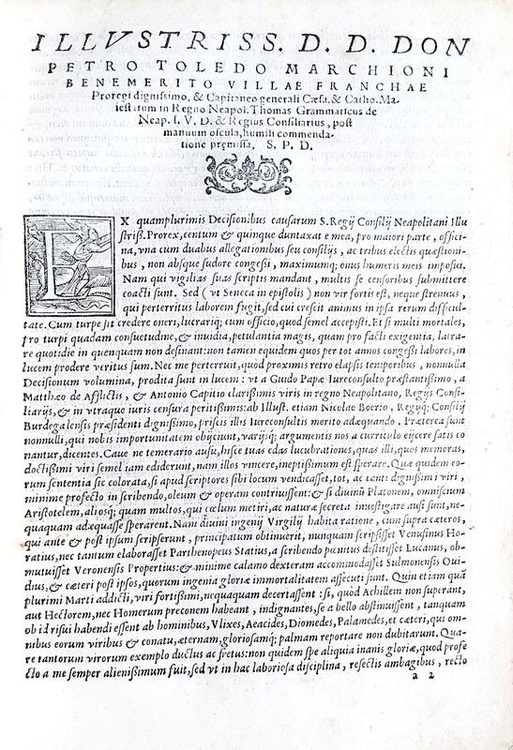 ILLVSTRISS. D. D. DON
PETRO TOLEDO MARCHIONI
BENEMERITO VILLAE FRANCHAE
Proregi dignissimo, & Capitaneo generali Cæsa. & Catho. Ma-
iestatum in Regno Neapol. Thomas Grammaticus de
Neap. I. V. D. & Regius Consiliarius, post
manuum oscula, humili commenda-
tione premissa, S. P. D.
EX quamplurimis Decisionibus causarum S. Regij Consilij Neapolitani Illu
striss. Prorex, centum & quinque duntaxat e mea, pro maiori parte, offici-
na, vna cum duabus allegationibus seu consilijs, ac tribus electis quæstioni-
bus, non absque sudore congessi, maximumq; onus humeris meis imposui.
Nam qui vigilias suas scriptis mandant, multis se censoribus submittere
coacti sunt. Sed (vt Seneca in epistolis) non vir fortis est, neque strenuus,
qui perterritus laborem fugit, sed cui crescit animus in ipsa rerum difficul-
tate. Cum turpe sit credere oneri, lucrariq; cum officio, quod semel accepisti. Et si multi mortales,
pro turpi quadam consuetudine, & inuidia, petulantia magis, quam pro facti exigentia, latra-
re quotidie in quenquam non desinant: non tamen equidem quos per tot annos congessi labores, in
lucem prodere veritus sum. Nec me perterruit, quod proximis retro elapsis temporibus, nonnulla
Decisionum volumina, prodita sunt in lucem: vt a Guido Papæ Iureconsulto præstantissimo, a
Matthæo de Afflictis, & Antonio Capitio clarissimis viris in regno Neapolitano, Regijs Consi-
liarijs, & in vtraque iuris censura peritissimis: ab Illust. etiam Nicolao Boerio, Regijq; Consilij
Burdegalensis præsidenti dignissimo, priscis illis Iureconsultis merito adæquando. Præterea sunt
nonnulli, qui nobis importunitatem obijciunt, varijsq; argumentis nos a curriculo eijcere satis co
nantur, dicentes. Caue ne temerario ausu, hisce tuas edas lucubrationes, quas illi, quos memoras,
doctissimi viri semel iam ediderunt, nam illos vincere, ineptissimum est sperare. Quæ quidem eo-
rum sententia sic colorata, si apud scriptores sibi locum vendicasset, tot, ac tanti dignissimi viri,
minime profecto in scribendo, oleum & operam contriuissent: & si diuinū Platonem, omniscium
Aristotelem, aliosq; quam multos, qui cœlum metiri, ac naturæ secreta inuestigare ausi sunt, ne-
quaquam adæquasse sperarent. Nam diuini ingenij Virgilij habita ratione, cum supra cæteros,
qui ante & post ipsum scripserunt, principatum obtinuerit, nunquam scripsisset Venusinus Ho-
ratius, nec tantum elaborasset Parthenopeus Statius, a scribendo pœnitus destitisset Lucanus, ob-
mutuisset Veronensis Propertius: & minime calamo dexteram accommodasset Sulmonensis Oui-
dius, & cæteri post ipsos, quorum ingenia gloriæ immortalitatem assecuti sunt. Quin etiam quā
plurimi Marti addicti, viri fortissimi, nequaquam decertassent: si, quòd Achillem non superant,
aut Hectorem, nec Homerum preconem habeant, indignantes, se a bello abstinuissent, tanquam
ob id risui habendi essent ab hominibus, Vlixes, Aeacides, Diomedes, Palamedes, et cæteri, qui om-
nibus eorum viribus & conatu, æternam, gloriosamq; palmam reportare non dubitarunt. Qua-
re tantorum virorum exemplo ductus ac fretus: non quidem spe aliqua inanis gloriæ, quod profe
cto a me semper alienissimum fuit, sed vt in hac laboriosa disciplina, resectis ambagibus, recto
a 2